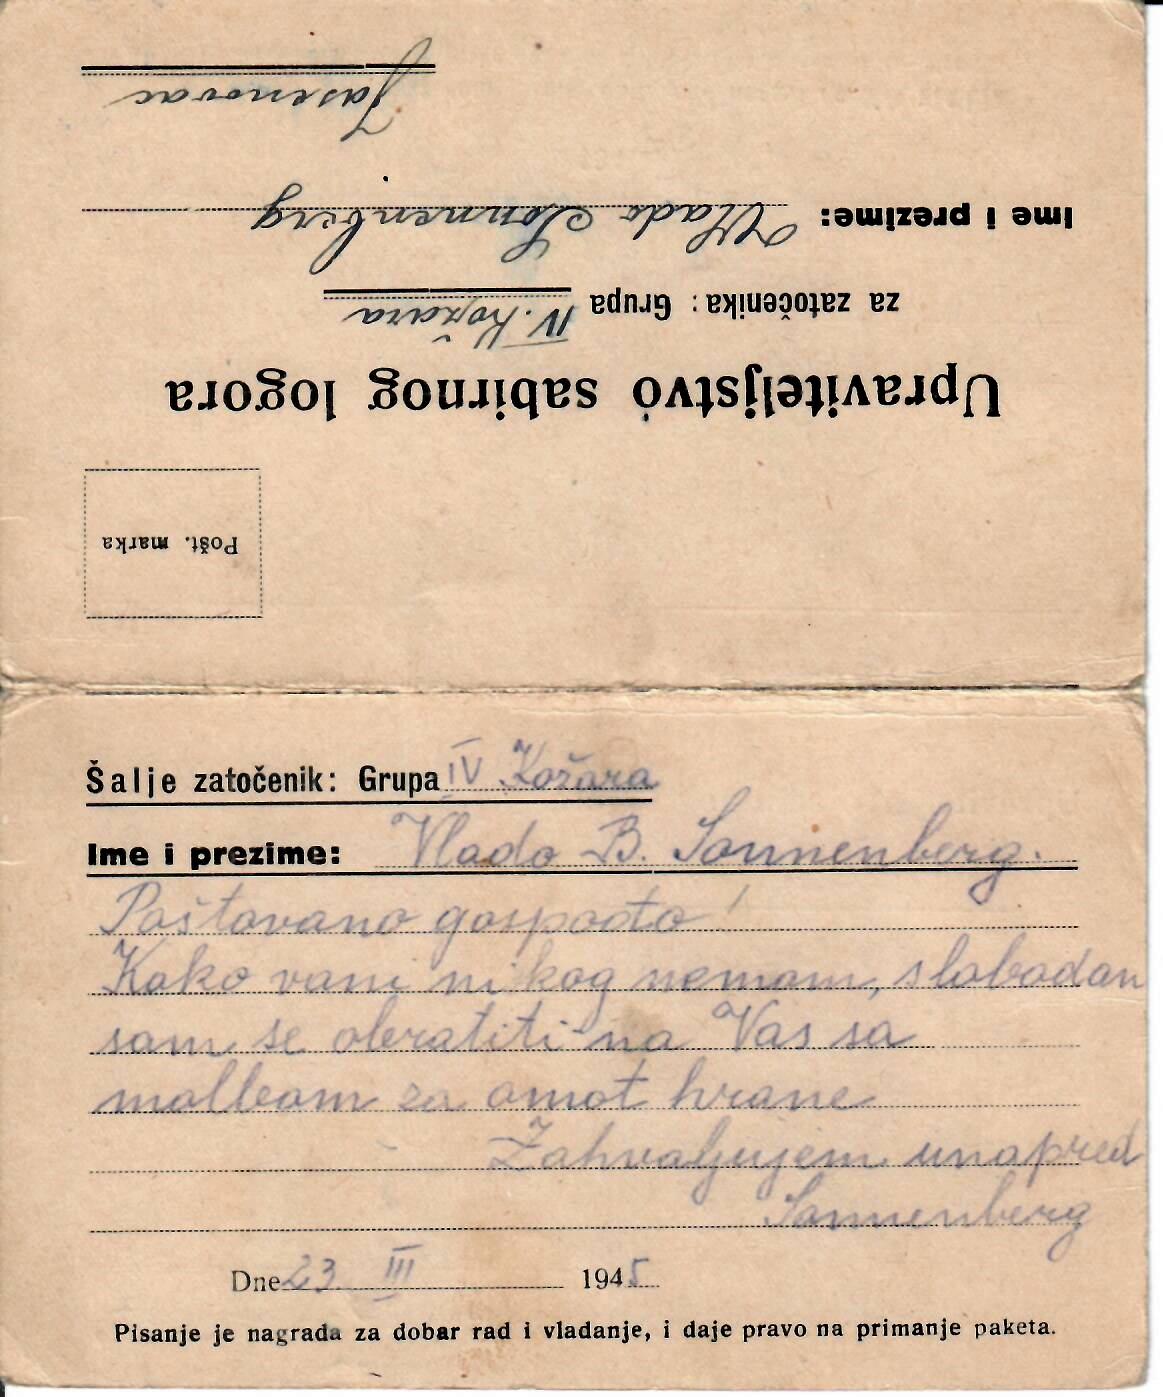 Jasenovac
Ime i prezime: Vlado Sonnenberg
za zatočenika: Grupa IV. Kožara
Upraviteljstvo sabirnog logora
Pošt. marka
Šalje zatočenik: Grupa IV Kožara
Ime i prezime: Vlado B. Sonnenberg.
Poštovano gospođo!
Kako vani nikog nemam, slobodan
sam se obratiti na Vas sa
molbom za omot hrane
Zahvaljujem unapred
Sonnenberg
Dne 23 III 1945
Pisanje je nagrada za dobar rad i vladanje, i daje pravo na primanje paketa.